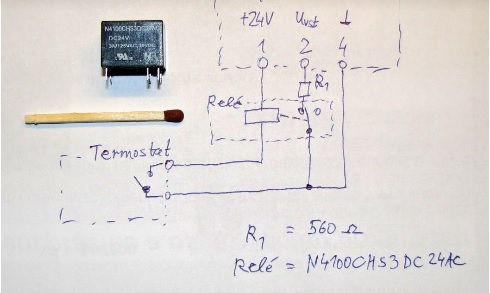 N4100CHS3DC24V
DC24V
+24V Uvst ⊥
1 2 4
R1
Relé
Termostat
R1 = 560 Ω
Relé = N4100CHS3DC24AC